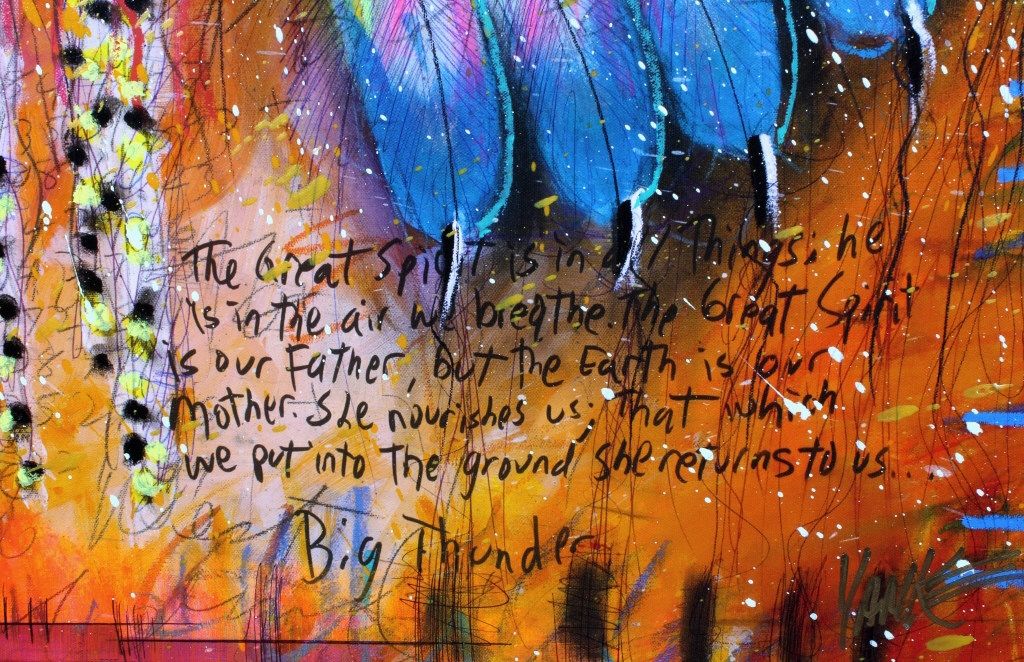 The Great Spirit is in all Things; he
is in the air we breathe. The Great Spirit
is our Father, but the Earth is our
Mother. She nourishes us; that which
we put into the ground she returns to us...
Big Thunder